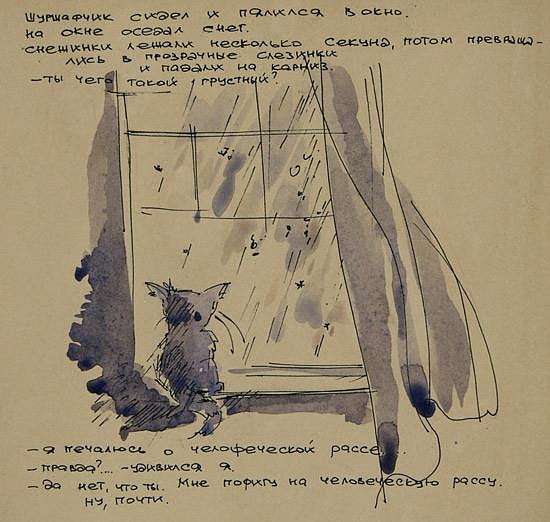 Шуршафчик сидел и пялился в окно.
на окне оседал снег.
снежинки лежали несколько секунд, потом превраща-
лись в прозрачные слезинки
и падали на карниз.
– ты чего такой грустный?
– я печалюсь о челофеческой рассе...
– правда?... – удивился я.
– да нет, что ты. Мне пофигу на человеческую рассу.
ну, почти.